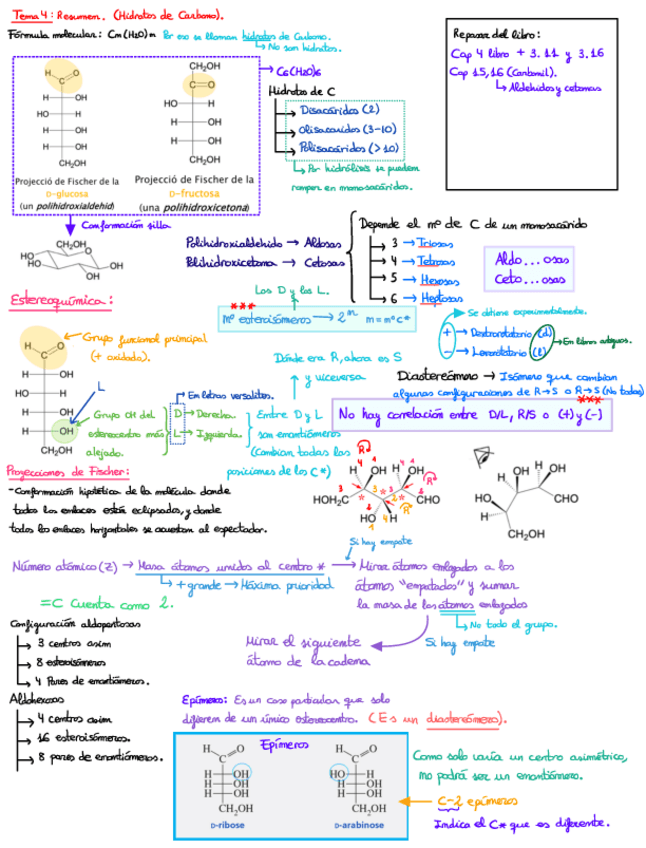 Tema 4: Resumen. (Hidratos de Carbono).
Fórmula molecular: Cm(H2O)m Por eso se llaman hidratos de Carbono.
No son hidratos.
Repasar del libro:
Cap 4 libro + 3.11 y 3.16
Cap 15,16 (Carbonil).
Aldehidos y cetonas
C6(H2O)6
H O
H OH
HO H
H OH
H OH
CH2OH
Projecció de Fischer de la
D-glucosa
(un polihidroxialdehid)
CH2OH
O
HO H
H OH
H OH
CH2OH
Projecció de Fischer de la
D-fructosa
(una polihidroxicetona)
Hidratos de C
Disacáridos (2)
Olisacaridos (3-10)
Polisacáridos (>10)
Por hidrólisis se pueden
romper en monosacáridos.
Conformación silla
CH2OH
HO O
HO OH
OH
Polihidroxialdehido → Aldosas
Polihidroxicetona → Cetosas
Depende el nº de C de un monosacárido
3 → Triosas
4 → Tetrosas
5 → Hexosas
6 → Heptosas
Aldo...osas
Ceto...osas
Estereoquímica:
Los D y los L.
***
nº estereoisómeros → 2^n n=nºC*
Se obtiene experimentalmente.
+ → Dextrorotatorio (d)
- → Levorotatorio (l)
En libros antiguos.
H O
H OH
HO H
H OH
H OH
CH2OH
Grupo funcional principal
(+ oxidado).
L
Grupo OH del
estereocentro más
alejado.
En letras versalitas.
D → Derecha.
L → Izquierda.
Dónde era R, ahora es S
y viceversa
Entre D y L
son enantiómeros
(Cambian todas las
posiciones de los C*)
Diastereómero → Isómero que cambian
algunas configuraciones de R→S o R→S (No todas)
***
No hay correlación entre D/L, R/S o (+) y (-)
Proyecciones de Fischer:
-Conformación hipotética de la molécula donde
todos los enlaces están eclipsados, y donde
todos los enlaces horizontales se acuestan al espectador.
R R
H OH H OH
HOH2C CHO
HO H
R
H OH
HO CHO
H OH
CH2OH
Si hay empate
Número atómico (Z) → Masa átomos unidos al centro * → Mirar átomos enlazados a los
+ grande → Máxima prioridad
átomos "empatados" y sumar
la masa de los átomos enlazados
No todo el grupo.
=C Cuenta como 2.
Si hay empate
Mirar el siguiente
átomo de la cadena
Configuración aldopentosas
3 centros asim
8 estereoisómeros
4 Pares de enantiómeros.
Aldohexosas
4 centros asim
16 estereoisómeros.
8 pares de enantiómeros.
Epímeros: Es un caso particular que solo
difieren de un único estereocentro. (Es un diastereómero).
Epímeros
H O
H OH
H OH
H OH
CH2OH
D-ribose
H O
HO H
H OH
H OH
CH2OH
D-arabinose
Como solo varía un centro asimétrico,
no podrá ser un enantiómero.
C-2 epímeros
Indica el C* que es diferente.